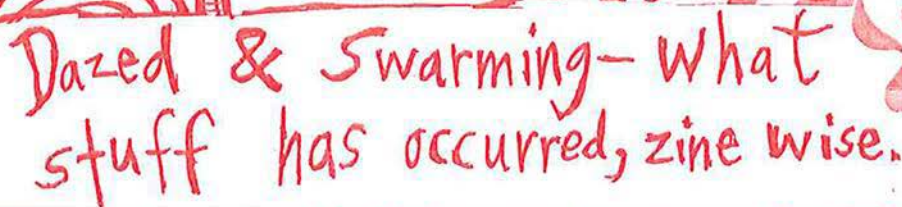 Dazed & Swarming- What
stuff has occurred, zine wise.